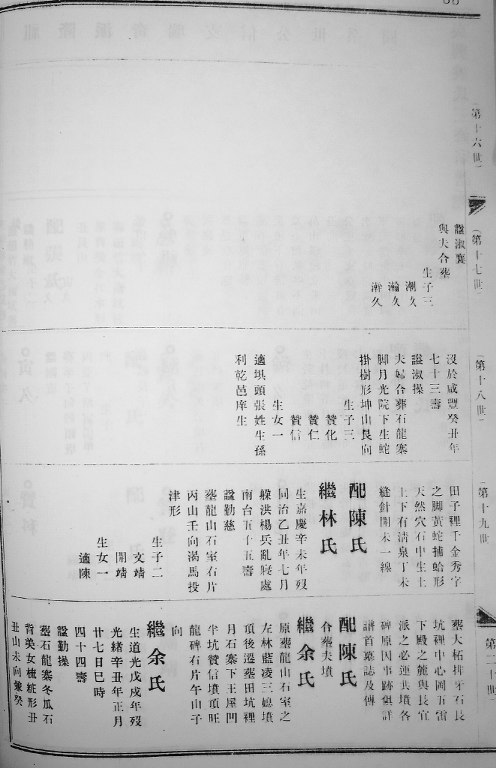 第十六世
第十七世
諡淑襄
與夫合葬
生子三
潮久
瀚久
澣久
第十八世
沒於咸豐癸丑年
七十三壽
諡淑操
夫婦合葬石龍寨
脚月光院下生蛇
掛樹形坤山艮向
生子三
贊化
贊仁
贊信
生女一
適垻頭張姓生孫
利乾邑庠生
第十九世
田子裡千金秀字
之脚黃蛇捕蛤形
天然穴石中生土
上下有淸泉丁未
縫針開未一線
配陳氏
繼林氏
生嘉慶辛未年歿
同治乙丑年七月
躲洪楊兵亂寢處
南台五十五壽
諡勤慈
葬龍山石室右片
丙山壬向渴馬投
津形
生子二
文靖
開靖
生女一
適陳
第二十世
葬大柘排牙石長
坑裡中心岡五雷
下殿之龍與長宜
派之必連共墳各
碑原因事跡俱詳
譜首墓誌及傳
配陳氏
合葬夫墳
繼余氏
原葬龍山石室之
左林藍凌三媳墳
頂後遷田坑裡
月石寨下王屋凹
半坑贊信墳項旺
龍碑石片午山子
向
繼余氏
生道光戊戌年歿
光緒辛丑年正月
廿七日巳時
四十四壽
諡勤操
葬石龍寨冬瓜石
背美女梳粧形丑
丑山未向兼癸